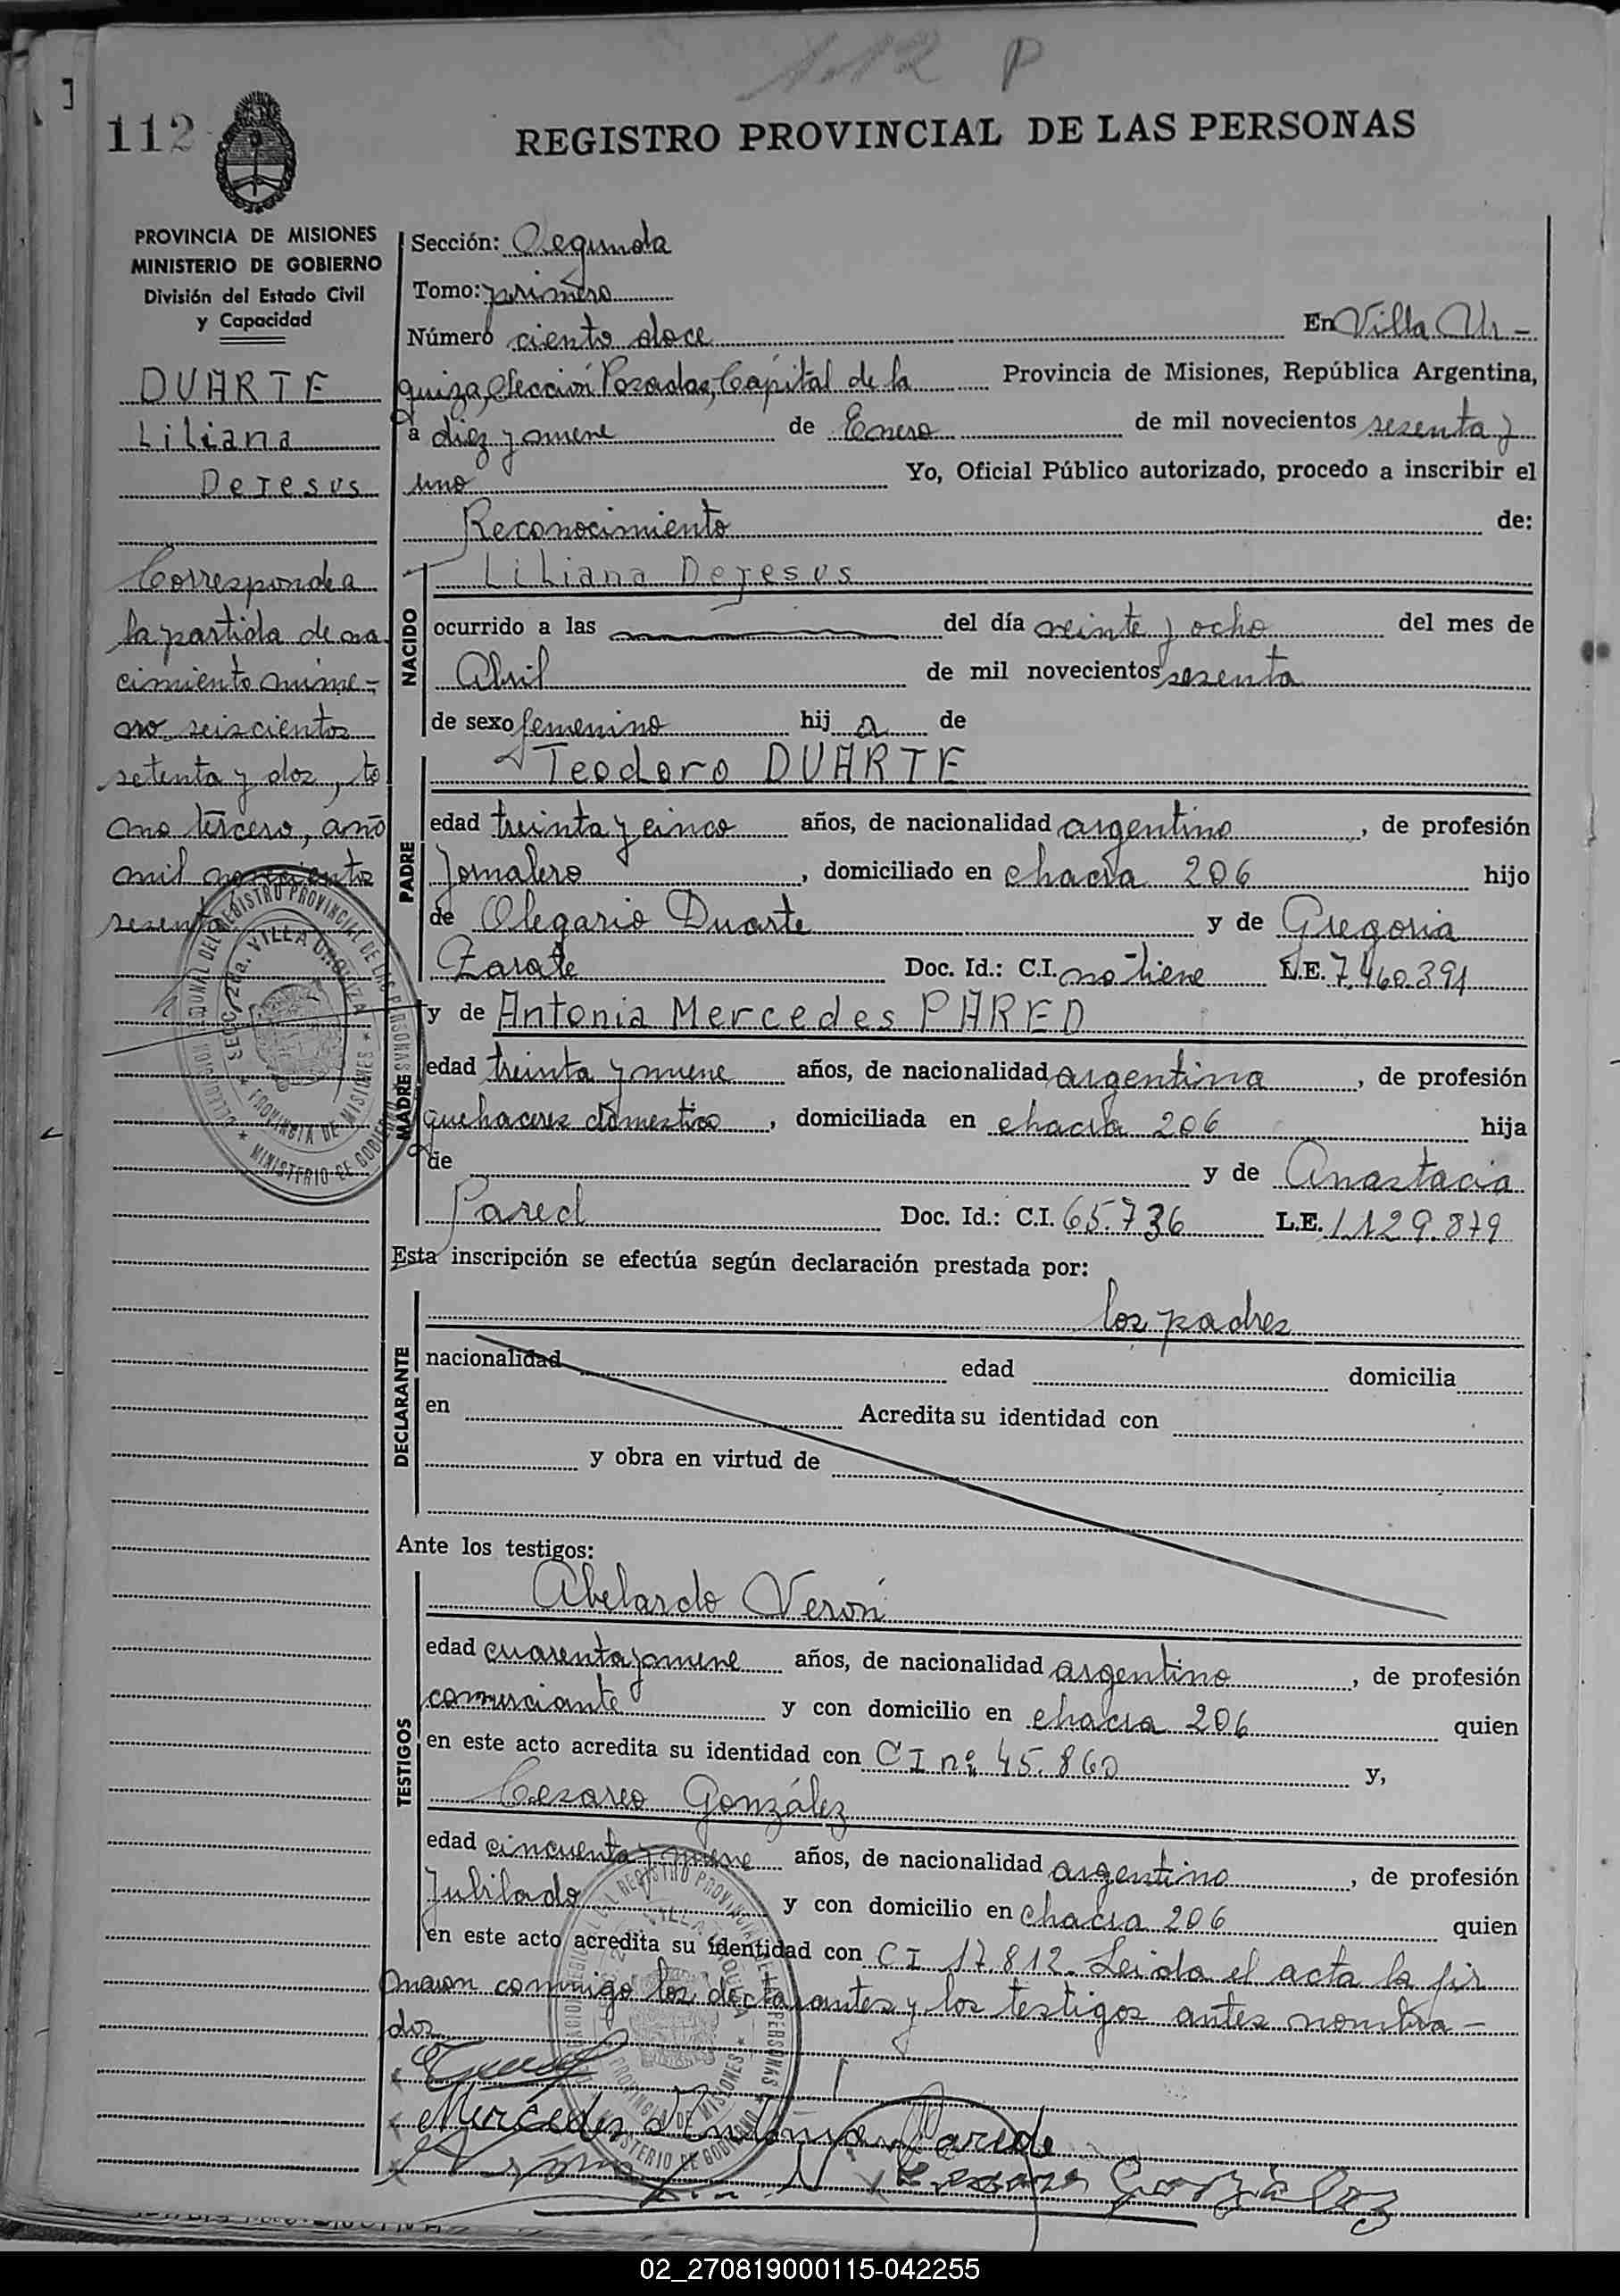 112 P
112
REGISTRO PROVINCIAL DE LAS PERSONAS
PROVINCIA DE MISIONES
MINISTERIO DE GOBIERNO
División del Estado Civil
y Capacidad
DUARTE
Liliana
Dejesus
Corresponde a
la partida de na
cimiento núme-
ro seiscientos
setenta y dos, to
mo tercero, año
mil novecientos
sesenta
Sección: Segunda
Tomo: primero
Número ciento doce En Villa Ur-
quiza, Sección Posadas, Capital de la Provincia de Misiones, República Argentina,
a diez y nueve de Enero de mil novecientos sesenta y
uno Yo, Oficial Público autorizado, procedo a inscribir el
Reconocimiento de:
NACIDO
Liliana Dejesus
ocurrido a las del día veinte y ocho del mes de
Abril de mil novecientos sesenta
de sexo femenino hij a de
PADRE
Teodoro DUARTE
edad treinta y cinco años, de nacionalidad argentino, de profesión
Jornalero, domiciliado en chacra 206 hijo
de Olegario Duarte y de Gregoria
Zarate Doc. Id.: C.I. no tiene L.E. 7.460.391
MADRE
y de Antonia Mercedes PARED
edad treinta y nueve años, de nacionalidad argentina, de profesión
quehaceres domestico, domiciliada en chacra 206 hija
de y de Anastacia
Pared Doc. Id.: C.I. 65.736 L.E. 1.129.879
Esta inscripción se efectúa según declaración prestada por:
DECLARANTE
los padres
nacionalidad edad domicilia
en Acredita su identidad con
y obra en virtud de
Ante los testigos:
TESTIGOS
Abelardo Verón
edad cuarenta y nueve años, de nacionalidad argentino, de profesión
comerciante y con domicilio en chacra 206 quien
en este acto acredita su identidad con C I nº 45.860 y,
Cesareo González
edad cincuenta y nueve años, de nacionalidad argentino, de profesión
Jubilado y con domicilio en chacra 206 quien
en este acto acredita su identidad con C I 17.812. Leida el acta la fir
maron conmigo los declarantes y los testigos antes nombra-
dos
Mercedes Antonia Parede
González
DELEGACION REGIONAL DEL REGISTRO PROVINCIAL DE LAS PERSONAS
SECC. 2da. VILLA URQUIZA
PROVINCIA DE MISIONES
MINISTERIO DE GOBIERNO
02_270819000115-042255